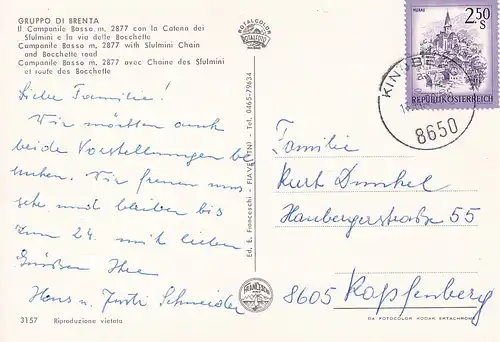 GRUPPO DI BRENTA
Il Campanile Basso m. 2877 con la Catena dei
Sfulmini e la via delle Bocchette
Campanile Basso m. 2877 with Sfulmini Chain
and Bocchette road
Campanile Basso m. 2877 avec Chaine des Sfulmini
et route des Bocchette
Liebe Familie!
Wir möchten auch
beide Vorstellungen be
suchen. Wir freuen uns
sehr und bleiben bis
zum 24. mit lieben
Grüßen Ihre
Hans u. Justi Schneider
3157 Riproduzione vietata
ROTALCOLOR
ROTALFOTO
Ed. E. Franceschi - FIAVE (TN) - Tel. 0465-79634
MURAU
2.50 S
REPUBLIK ÖSTERREICH
KINDBE
8650
Familie
Kurt Dunkel
Haubergerstraße 55
8605 Kapfenberg
DA FOTOCOLOR KODAK EKTACHROME